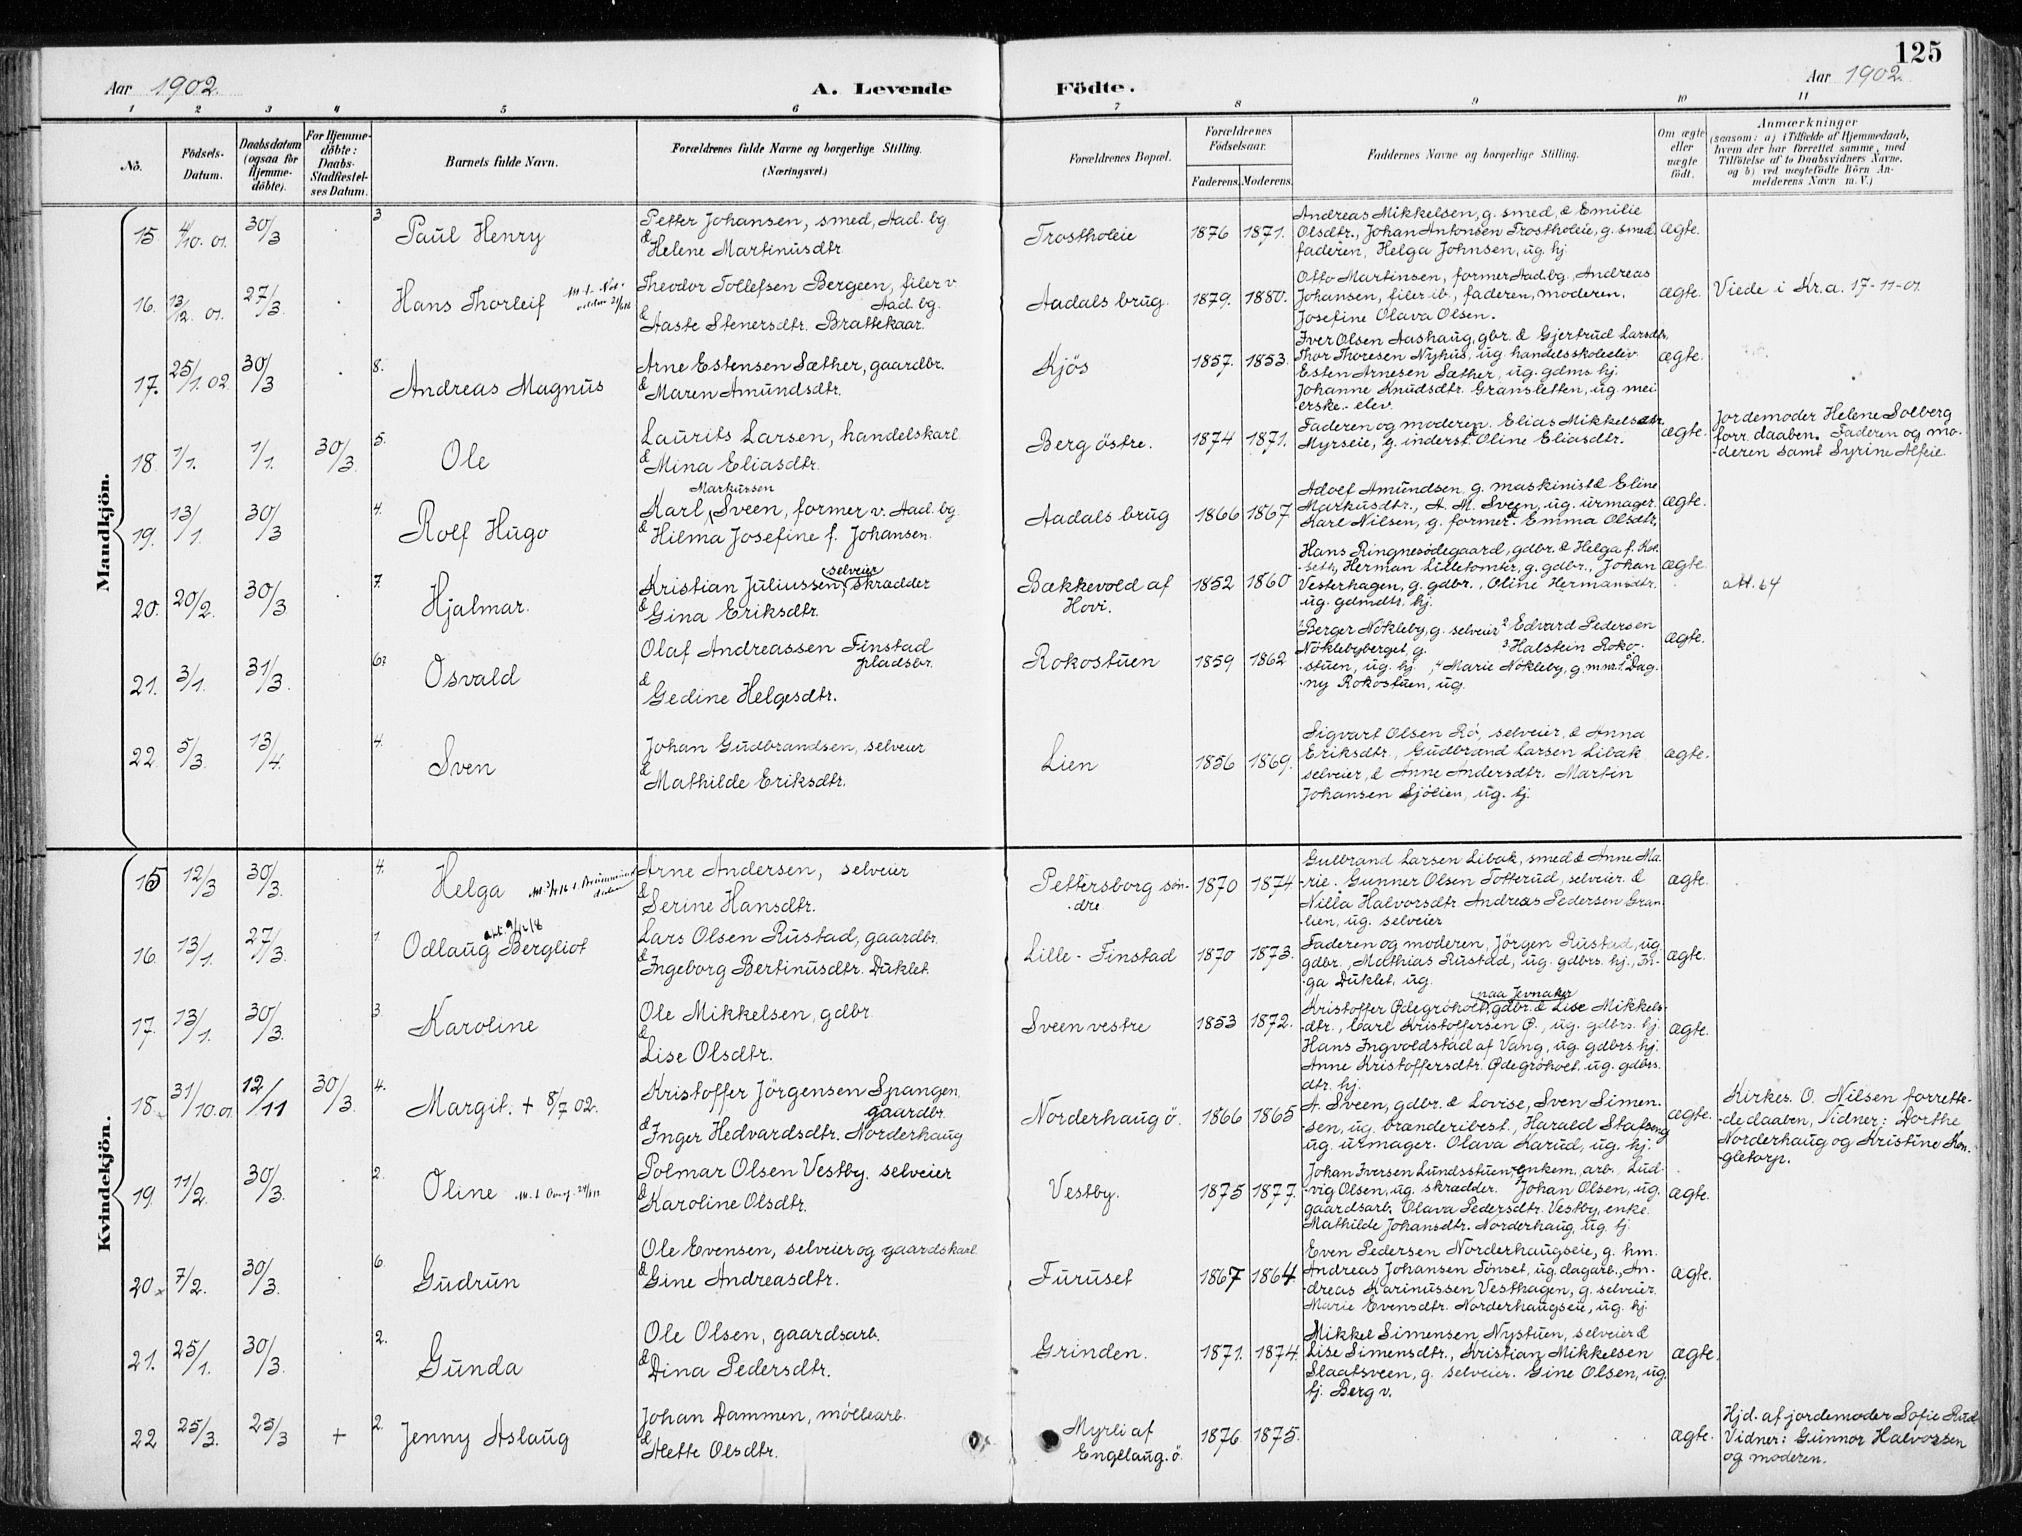 125
Aar 1902.
A. Levende Födte.
Aar 1902.
1 2 3 4 5 6 7 8 9 10 11
No.
Födsels-
Datum.
Daabsdatum
(ogsaa for
Hjemme-
döbte).
For Hjemme-
döbte:
Daabs-
Stadfæstel-
ses Datum.
Barnets fulde Navn.
Forældrenes fulde Navne og borgerlige Stilling.
(Næringsvei.)
Forældrenes Bopæl.
Forældrenes
Födselsaar.
Faderens. Moderens.
Faddernes Navne og borgerlige Stilling.
Om ægte
eller
uægte
födt.
Anmærkninger
(saasom: a) i Tilfælde af Hjemmedaab,
hvem der har forrettet samme, med
Tilföielse af to Daabsvidners Navne,
og b) ved uægtefödte Börn An-
melderens Navn m. V.)
Mandkjön.
15. 4/10. 01. 30/3 3 Paul Henry
Petter Johansen, smed, Aad. bg
& Helene Martinusdtr.
Trostholeie 1876 1871.
Andreas Mikkelsen, g. smed, & Emilie
Olsdtr., Johan Antonsen Trostholeie, g. smed,
faderen, Helga Johnsen, ug. hj.
ægte.
16. 13/12. 01. 27/3. Hans Thorleif
Theodor Tollefsen Bergeen, filer v
Aad. bg.
& Aaste Stenersdtr. Brattekaar.
Aadals brug. 1879. 1880.
Otto Martinsen, former Aad. bg., Andreas
Johansen, filer ib., faderen, moderen,
Josefine Olava Olsen.
ægte. Viede i Kr.a. 17-11-01
17. 25/1. 02 30/3 8. Andreas Magnus
Arne Estensen Sæther, gaardbr.
& Maren Amundsdtr.
Kjös 1857. 1853.
Iver Olsen Aashaug, gbr. & Gjertrud Larsdtr,
Thor Thoresen Nyhus, ug. handelsskoleelev
Esten Arnesen Sæther, ug. gdms. hj.
Johanne Knudsdtr. Gransletten, ug. mei-
erske-elev.
ægte.
18. 1/1. 1/1. 30/3. 5. Ole
Laurits Larsen, handelskarl
& Mina Eliasdtr.
Berg östre. 1874 1871.
Faderen og moderen. Elias Mikkelsen
Myrseie, g. inderst & Oline Eliasdtr.
ægte.
Jordemoder Helene Solberg
forr. daaben. Faderen og mo-
deren samt Syrine Alfeie
19. 13/1. 30/3 4. Rolf Hugo
Markussen
Karl Sveen, former v. Aad. bg
& Hilma Josefine f. Johansen.
Aadals brug 1866 1867.
Adolf Amundsen, g. maskinist & Eline
Markusdtr., A. M. Sveen, ug. urmager.
Karl Nilsen, g. former & Emma Olsdtr.
ægte.
20. 20/2. 30/3 7. Hjalmar.
Kristian Juliussen, selveier skrædder
& Gina Eriksdtr.
Bækkevold af
Hovi.
1852 1860
Hans Ringnesödegaard, gdbr. & Helga f. Kol-
seth, Herman Lilletomter, g. gdbr., Johan
Vesterhagen, g. gdbr., Oline Hermansdtr.
ug. gdmdtr. hj.
ægte. att. 64
21. 3/1. 31/3. 6. Osvald
Olaf Andreassen Finstad
pladsbr.
& Gedine Helgesdtr.
Rokostuen 1859 1862
1 Berger Nökleby, g. selveier 2 Edvard Pedersen
Nöklebyberget, g. 3 Halstein Roko-
stuen, ug. hj., 4 Marie Nökleby, g. m. nr. 1. Dag-
ny Rokostuen, ug.
ægte.
22 5/3. 13/4. 4. Sven
Johan Gudbrandsen, selveier
& Mathilde Eriksdtr.
Lien 1856 1869.
Sigvart Olsen Rö, selveier, & Anna
Eriksdtr., Gudbrand Larsen Libak
selveier, & Anne Andersdtr. Martin
Johansen Sjölien, ug. hj.
ægte.
Kvindekjön.
15 12/3 30/3. 4. Helga
Arne Andersen, selveier
& Serine Hansdtr.
Pettersborg sön-
dre
1870 1874
Gulbrand Larsen Libak, smed & Anne Ma-
rie. Gunner Olsen Totterud, selveier. &
Nilla Halvorsdtr. Andreas Pedersen Gran-
lien, ug. selveier
ægte.
16. 13/1. 27/3. 1. Odlaug Bergliot
Lars Olsen Rustad, gaardbr.
& Ingeborg Bertinusdtr. Duklet.
Lille-Finstad 1870 1873.
Faderen og moderen, Jörgen Rustad, ug.
gdbr., Mathias Rustad, ug. gdbrs. hj., In-
ga Duklet, ug.
ægte.
17. 13/1. 30/3. 3 Karoline
Ole Mikkelsen, gdbr.
& Lise Olsdtr.
Sveen vestre 1853 1872.
paa Jevnaker
Kristoffer Ödegröholt, gdbr. & Lise Mikkels-
dtr., Carl Kristoffersen Ö., ug. gdbrs. hj.
Hans Ingvoldstad af Vang, ug. gdbrs. hj.
Anne Kristoffersdtr. Ödegröholt, ug. gdbrs.
dtr. hj.
ægte.
18. 31/10. 01 12/11 30/3. 4. Margit. + 8/7 02.
Kristoffer Jörgensen Spangen
gaardbr.
& Inger Hedvardsdtr. Norderhaug
Norderhaug ö. 1866 1865
A. Sveen, gdbr. & Lovise, Sven Simen-
sen, ug. brænderibest., Harald Stafseng
ug. urmager. Olava Karud, ug. hj.
ægte.
Kirkes. O. Nilsen forrette-
de daaben, Vidner: Dorthe
Norderhaug og Kristine Kon-
gletorp.
19. 11/2. 30/3. 2. Oline
Polmar Olsen Vestby, selveier
& Karoline Olsdtr.
Vestby. 1875 1877.
Johan Iversen Lundsstuen, enkem. arb., Lud-
vig Olsen, ug. skrædder. Johan Olsen, ug.
gaardsarb. Olava Pedersdtr. Vestby, enke
Mathilde Johansdtr. Norderhaug, ug. hj.
ægte.
20. 7/2. 30/3. 6. Gudrun
Ole Evensen, selveier og gaardskarl
& Gine Andreasdtr.
Furuset 1867 1864
Even Pedersen Norderhaugseie, g. hm.
Andreas Johansen Tönset, ug. dagarb., An-
dreas Karinussen Vesthagen, g. selveier.
Marie Evensdtr. Norderhaugseie, ug. hj.
ægte.
21. 25/1. 30/3. 2. Gunda
Ole Olsen, gaardsarb.
& Dina Pedersdtr.
Grinden. 1871. 1874.
Mikkel Simensen Nystuen, selveier &
Lise Simensdtr., Kristian Mikkelsen
Slaatsveen, g. selveier. Gine Olsen, ug.
hj. Berg v.
ægte.
22 25/3. 25/3 + 2. Jenny Aslaug
Johan Dammen, möllearb.
& Mette Olsdtr.
Myrli af
Engelaug. ö.
1876. 1875.
ægte.
Hjd. af jordemoder Sofie Rud
Vidner: Gunnor Halvorsen
og moderen.